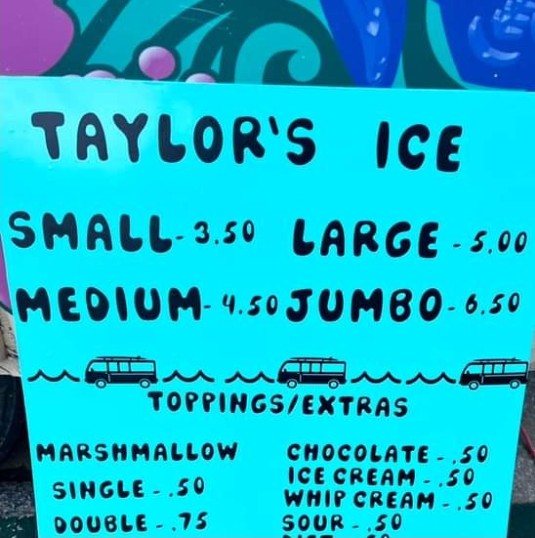 TAYLOR'S ICE
SMALL - 3.50 LARGE - 5.00
MEDIUM - 4.50 JUMBO - 6.50
TOPPINGS/EXTRAS
MARSHMALLOW
SINGLE - .50
DOUBLE - .75
CHOCOLATE - .50
ICE CREAM - .50
WHIP CREAM - .50
SOUR - .50